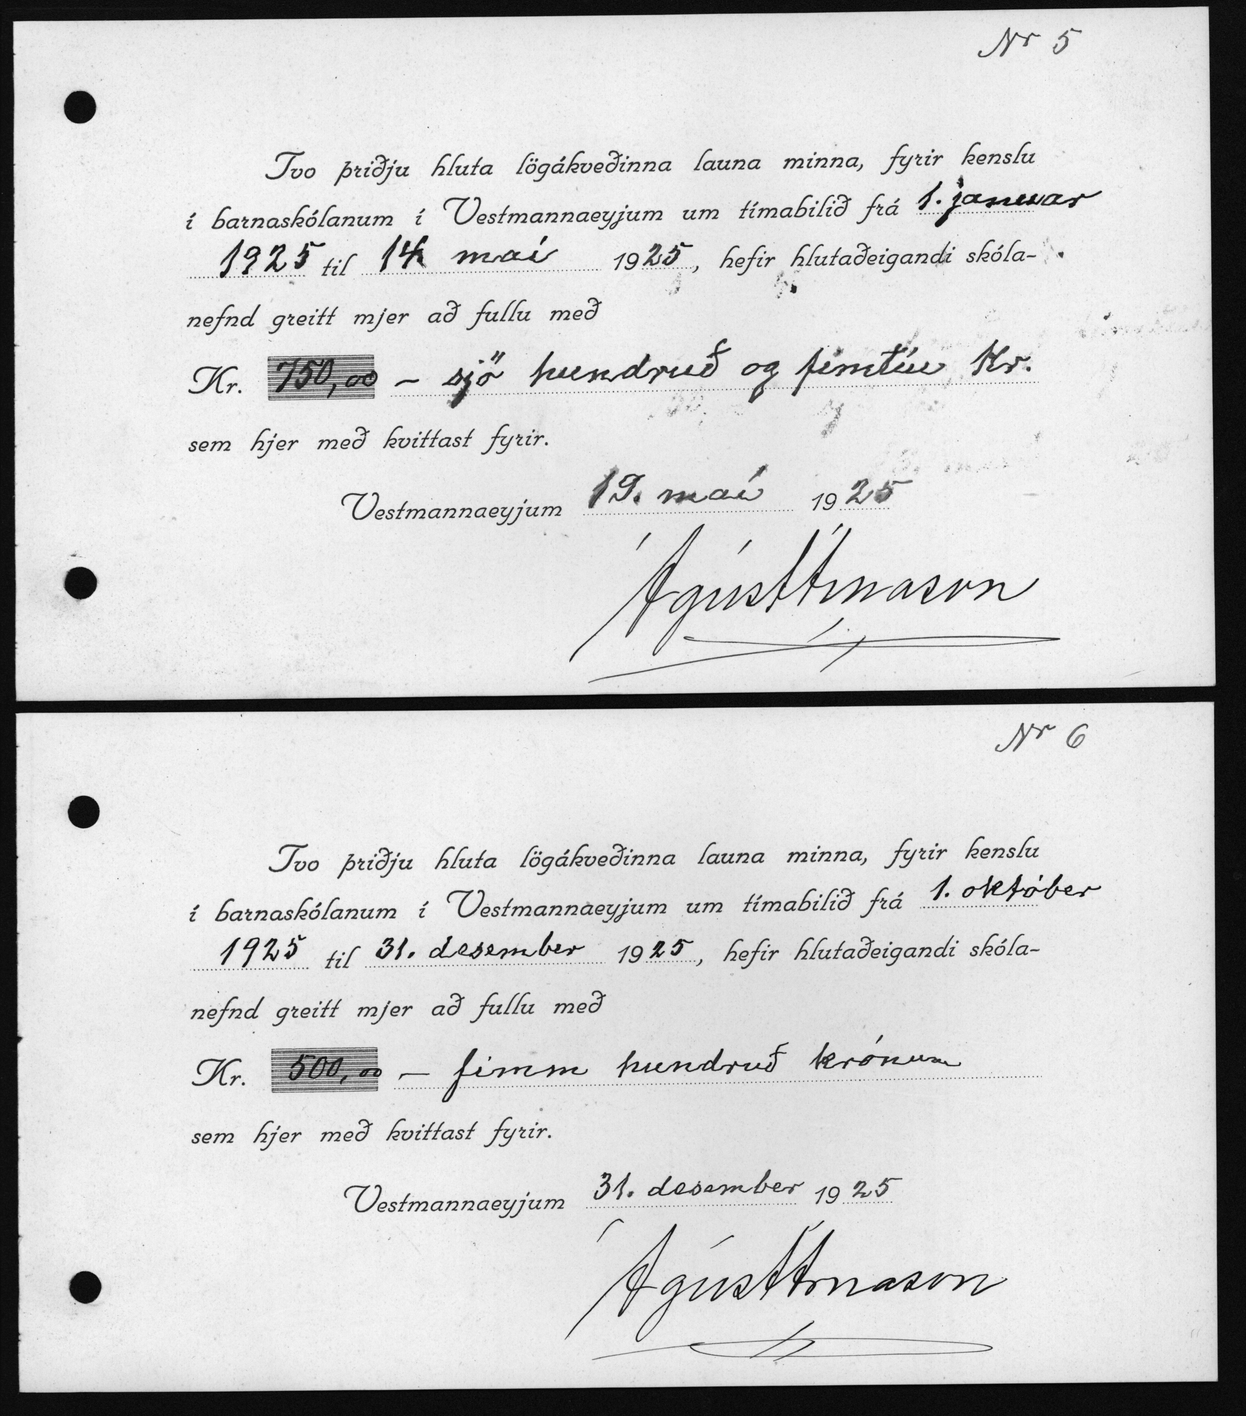 Nr 5
Tvo þriðju hluta lögákveðinna launa minna, fyrir kenslu
í barnaskólanum í Vestmannaeyjum um tímabilið frá 1. januar
1925 til 14 maí 1925, hefir hlutaðeigandi skóla-
nefnd greitt mjer að fullu með
Kr. 750,00 – sjö hundruð og fimtíu Kr.
sem hjer með kvittast fyrir.
Vestmannaeyjum 19. maí 1925
Ágúst Árnason
Nr 6
Tvo þriðju hluta lögákveðinna launa minna, fyrir kenslu
í barnaskólanum í Vestmannaeyjum um tímabilið frá 1. október
1925 til 31. desember 1925, hefir hlutaðeigandi skóla-
nefnd greitt mjer að fullu með
Kr. 500,00 – fimm hundruð krónum
sem hjer með kvittast fyrir.
Vestmannaeyjum 31. desember 1925
Ágúst Árnason